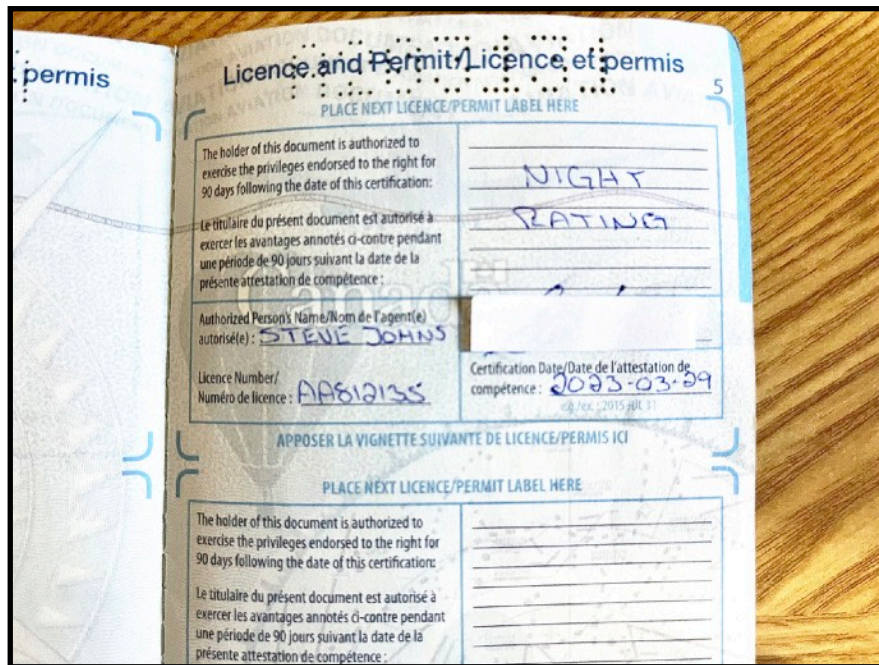 permis
Licence and Permit/Licence et permis
5
PLACE NEXT LICENCE/PERMIT LABEL HERE
The holder of this document is authorized to
exercise the privileges endorsed to the right for
90 days following the date of this certification:
Le titulaire du présent document est autorisé à
exercer les avantages annotés ci-contre pendant
une période de 90 jours suivant la date de la
présente attestation de compétence :
NIGHT
RATING
Canada
Authorized Person's Name/Nom de l'agent(e)
autorisé(e) : STEVE JOHNS
Licence Number/
Numéro de licence : AA812135
Certification Date/Date de l'attestation de
compétence : 2023-03-29
e.g./ex. : 2015 jult 31
APPOSER LA VIGNETTE SUIVANTE DE LICENCE/PERMIS ICI
PLACE NEXT LICENCE/PERMIT LABEL HERE
The holder of this document is authorized to
exercise the privileges endorsed to the right for
90 days following the date of this certification:
Le titulaire du présent document est autorisé à
exercer les avantages annotés ci-contre pendant
une période de 90 jours suivant la date de la
présente attestation de compétence :